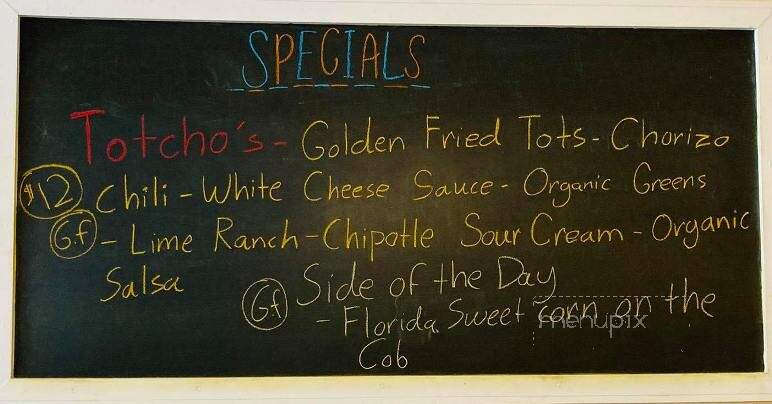 SPECIALS
Totcho's - Golden Fried Tots - Chorizo
$12 Chili - White Cheese Sauce - Organic Greens
G.f - Lime Ranch - Chipotle Sour Cream - Organic
Salsa
Gf Side of the Day
- Florida Sweet corn on the
Cob
menupix